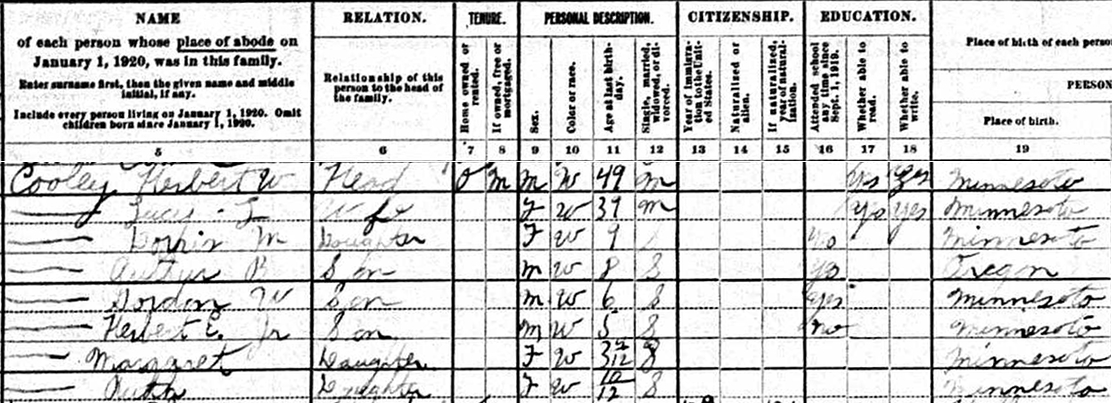 NAME RELATION. TENURE. PERSONAL DESCRIPTION. CITIZENSHIP. EDUCATION.
of each person whose place of abode on January 1, 1920, was in this family.
Enter surname first, then the given name and middle initial, if any.
Include every person living on January 1, 1920. Omit children born since January 1, 1920.
Relationship of this person to the head of the family.
Home owned or rented.
If owned, free or mortgaged.
Sex.
Color or race.
Age at last birthday.
Single, married, widowed, or divorced.
Year of immigration to the United States.
Naturalized or alien.
If naturalized, year of naturalization.
Attended school any time since Sept. 1, 1919.
Whether able to read.
Whether able to write.
Place of birth of each perso
PERSON
Place of birth.
5 6 7 8 9 10 11 12 13 14 15 16 17 18 19
Cooley Herbert W Head O M M W 49 M Yes Yes Minnesota
Wife F W 39 M Yes Yes Minnesota
M Daughter F W 9 Yes Minnesota
Arthur B Son M W 8 S Yes Oregon
Gordon W Son M W 6 S Yes Minnesota
Herbert E. Jr Son M W 5 S No Minnesota
Margaret Daughter F W S Minnesota
Ruth Daughter F W 10/12 S Minnesota